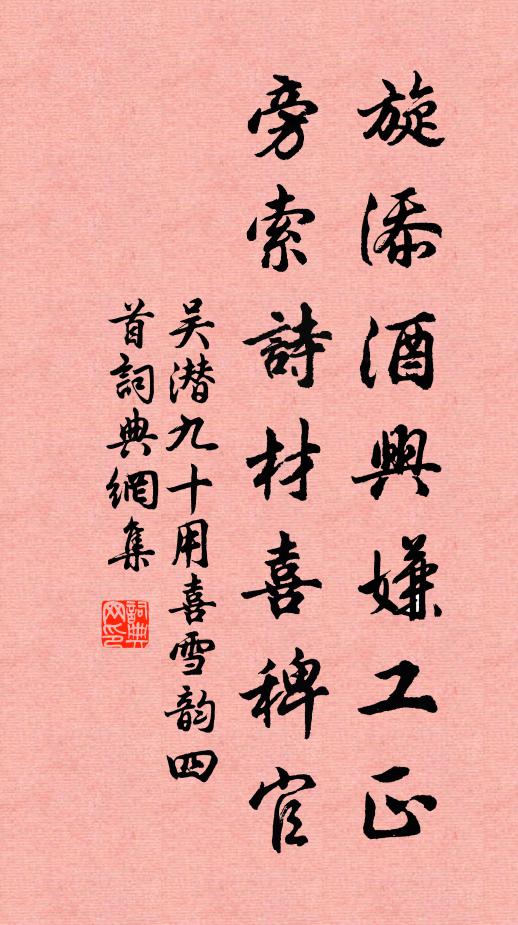 旋添酒興嫌工正
旁索詩材喜稗官
吴潜九十用喜雪韵四
首詞典網集
詞典
网印